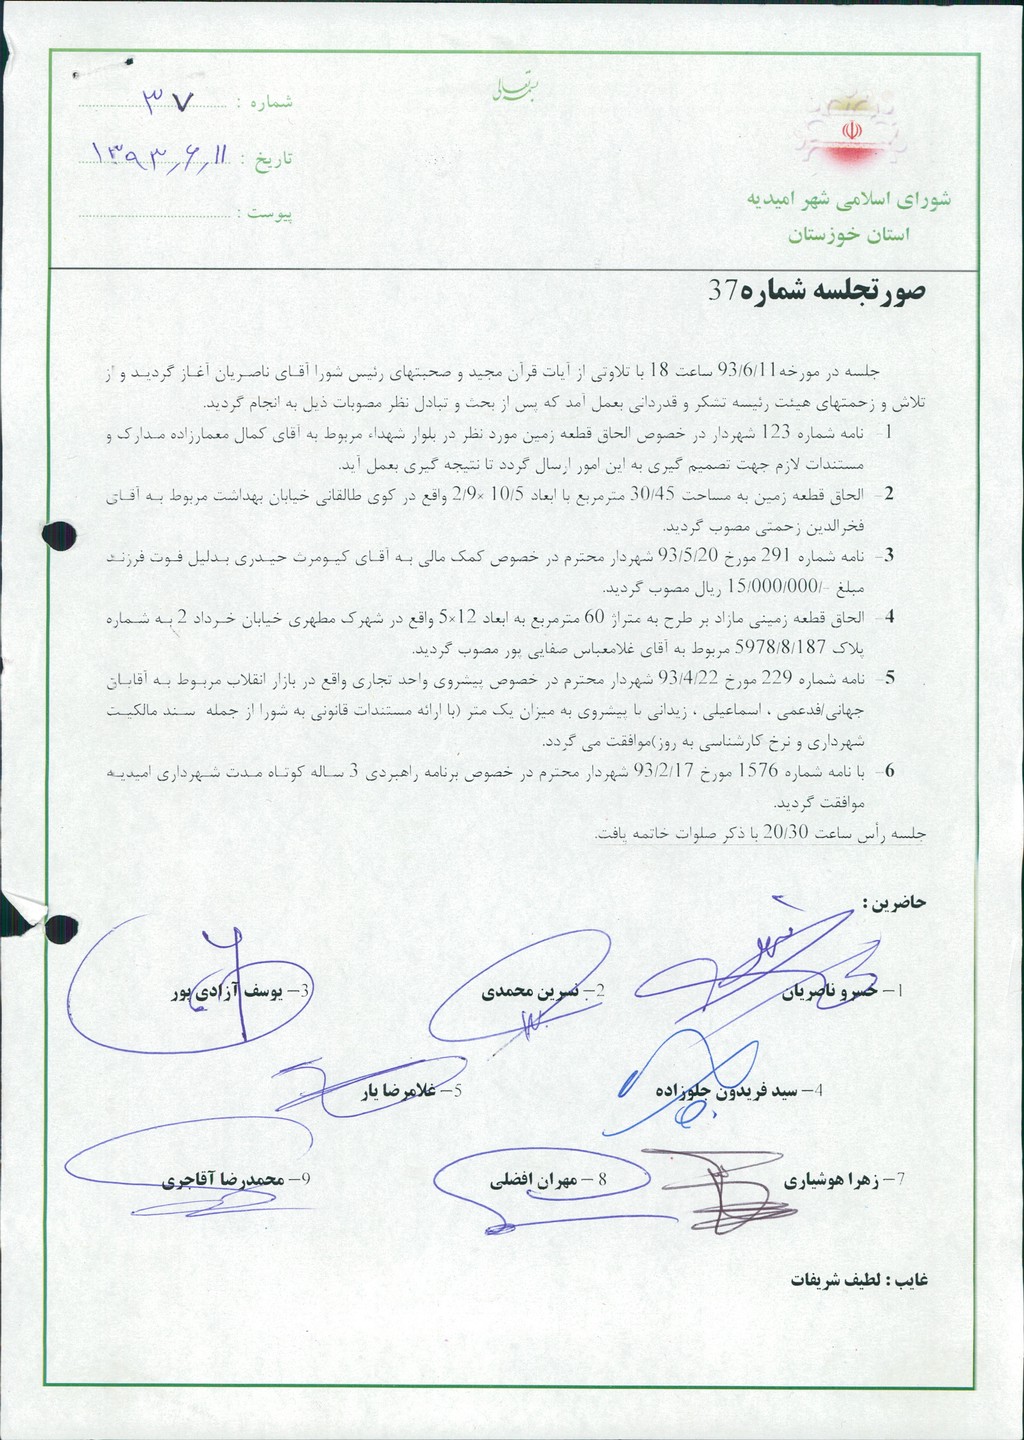 بسمه تعالی
شماره : ۳۷
تاریخ : ۱۳۹۳٫۶٫۱۱
پیوست :
شورای اسلامی شهر امیدیه
استان خوزستان
صورتجلسه شماره37
جلسه در مورخه93/6/11 ساعت 18 با تلاوتی از آیات قرآن مجید و صحبتهای رئیس شورا آقای ناصریان آغاز گردید و از
تلاش و زحمتهای هیئت رئیسه تشکر و قدردانی بعمل آمد که پس از بحث و تبادل نظر مصوبات ذیل به انجام گردید.
1- نامه شماره 123 شهردار در خصوص الحاق قطعه زمین مورد نظر در بلوار شهداء مربوط به آقای کمال معمارزاده مدارک و
مستندات لازم جهت تصمیم گیری به این امور ارسال گردد تا نتیجه گیری بعمل آید.
2- الحاق قطعه زمین به مساحت 30/45 مترمربع با ابعاد 10/5 ×2/9 واقع در کوی طالقانی خیابان بهداشت مربوط به آقای
فخرالدین زحمتی مصوب گردید.
3- نامه شماره 291 مورخ 93/5/20 شهردار محترم در خصوص کمک مالی به آقای کیومرث حیدری بدلیل فوت فرزند
مبلغ -/15/000/000 ریال مصوب گردید.
4- الحاق قطعه زمینی مازاد بر طرح به متراژ 60 مترمربع به ابعاد 12×5 واقع در شهرک مطهری خیابان خرداد 2 به شماره
پلاک 5978/8/187 مربوط به آقای غلامعباس صفایی پور مصوب گردید.
5- نامه شماره 229 مورخ 93/4/22 شهردار محترم در خصوص پیشروی واحد تجاری واقع در بازار انقلاب مربوط به آقایان
جهانی/فدعمی ، اسماعیلی ، زیدانی با پیشروی به میزان یک متر (با ارائه مستندات قانونی به شورا از جمله سند مالکیت
شهرداری و نرخ کارشناسی به روز)موافقت می گردد.
6- با نامه شماره 1576 مورخ 93/2/17 شهردار محترم در خصوص برنامه راهبردی 3 ساله کوتاه مدت شهرداری امیدیه
موافقت گردید.
جلسه رأس ساعت 20/30 با ذکر صلوات خاتمه یافت.
حاضرین :
1- خسرو ناصریان 2- نسرین محمدی 3- یوسف آزادی پور
4- سید فریدون جلوزاده 5- غلامرضا یار
7- زهرا هوشیاری 8 - مهران افضلی 9- محمدرضا آقاجری
غایب : لطیف شریفات